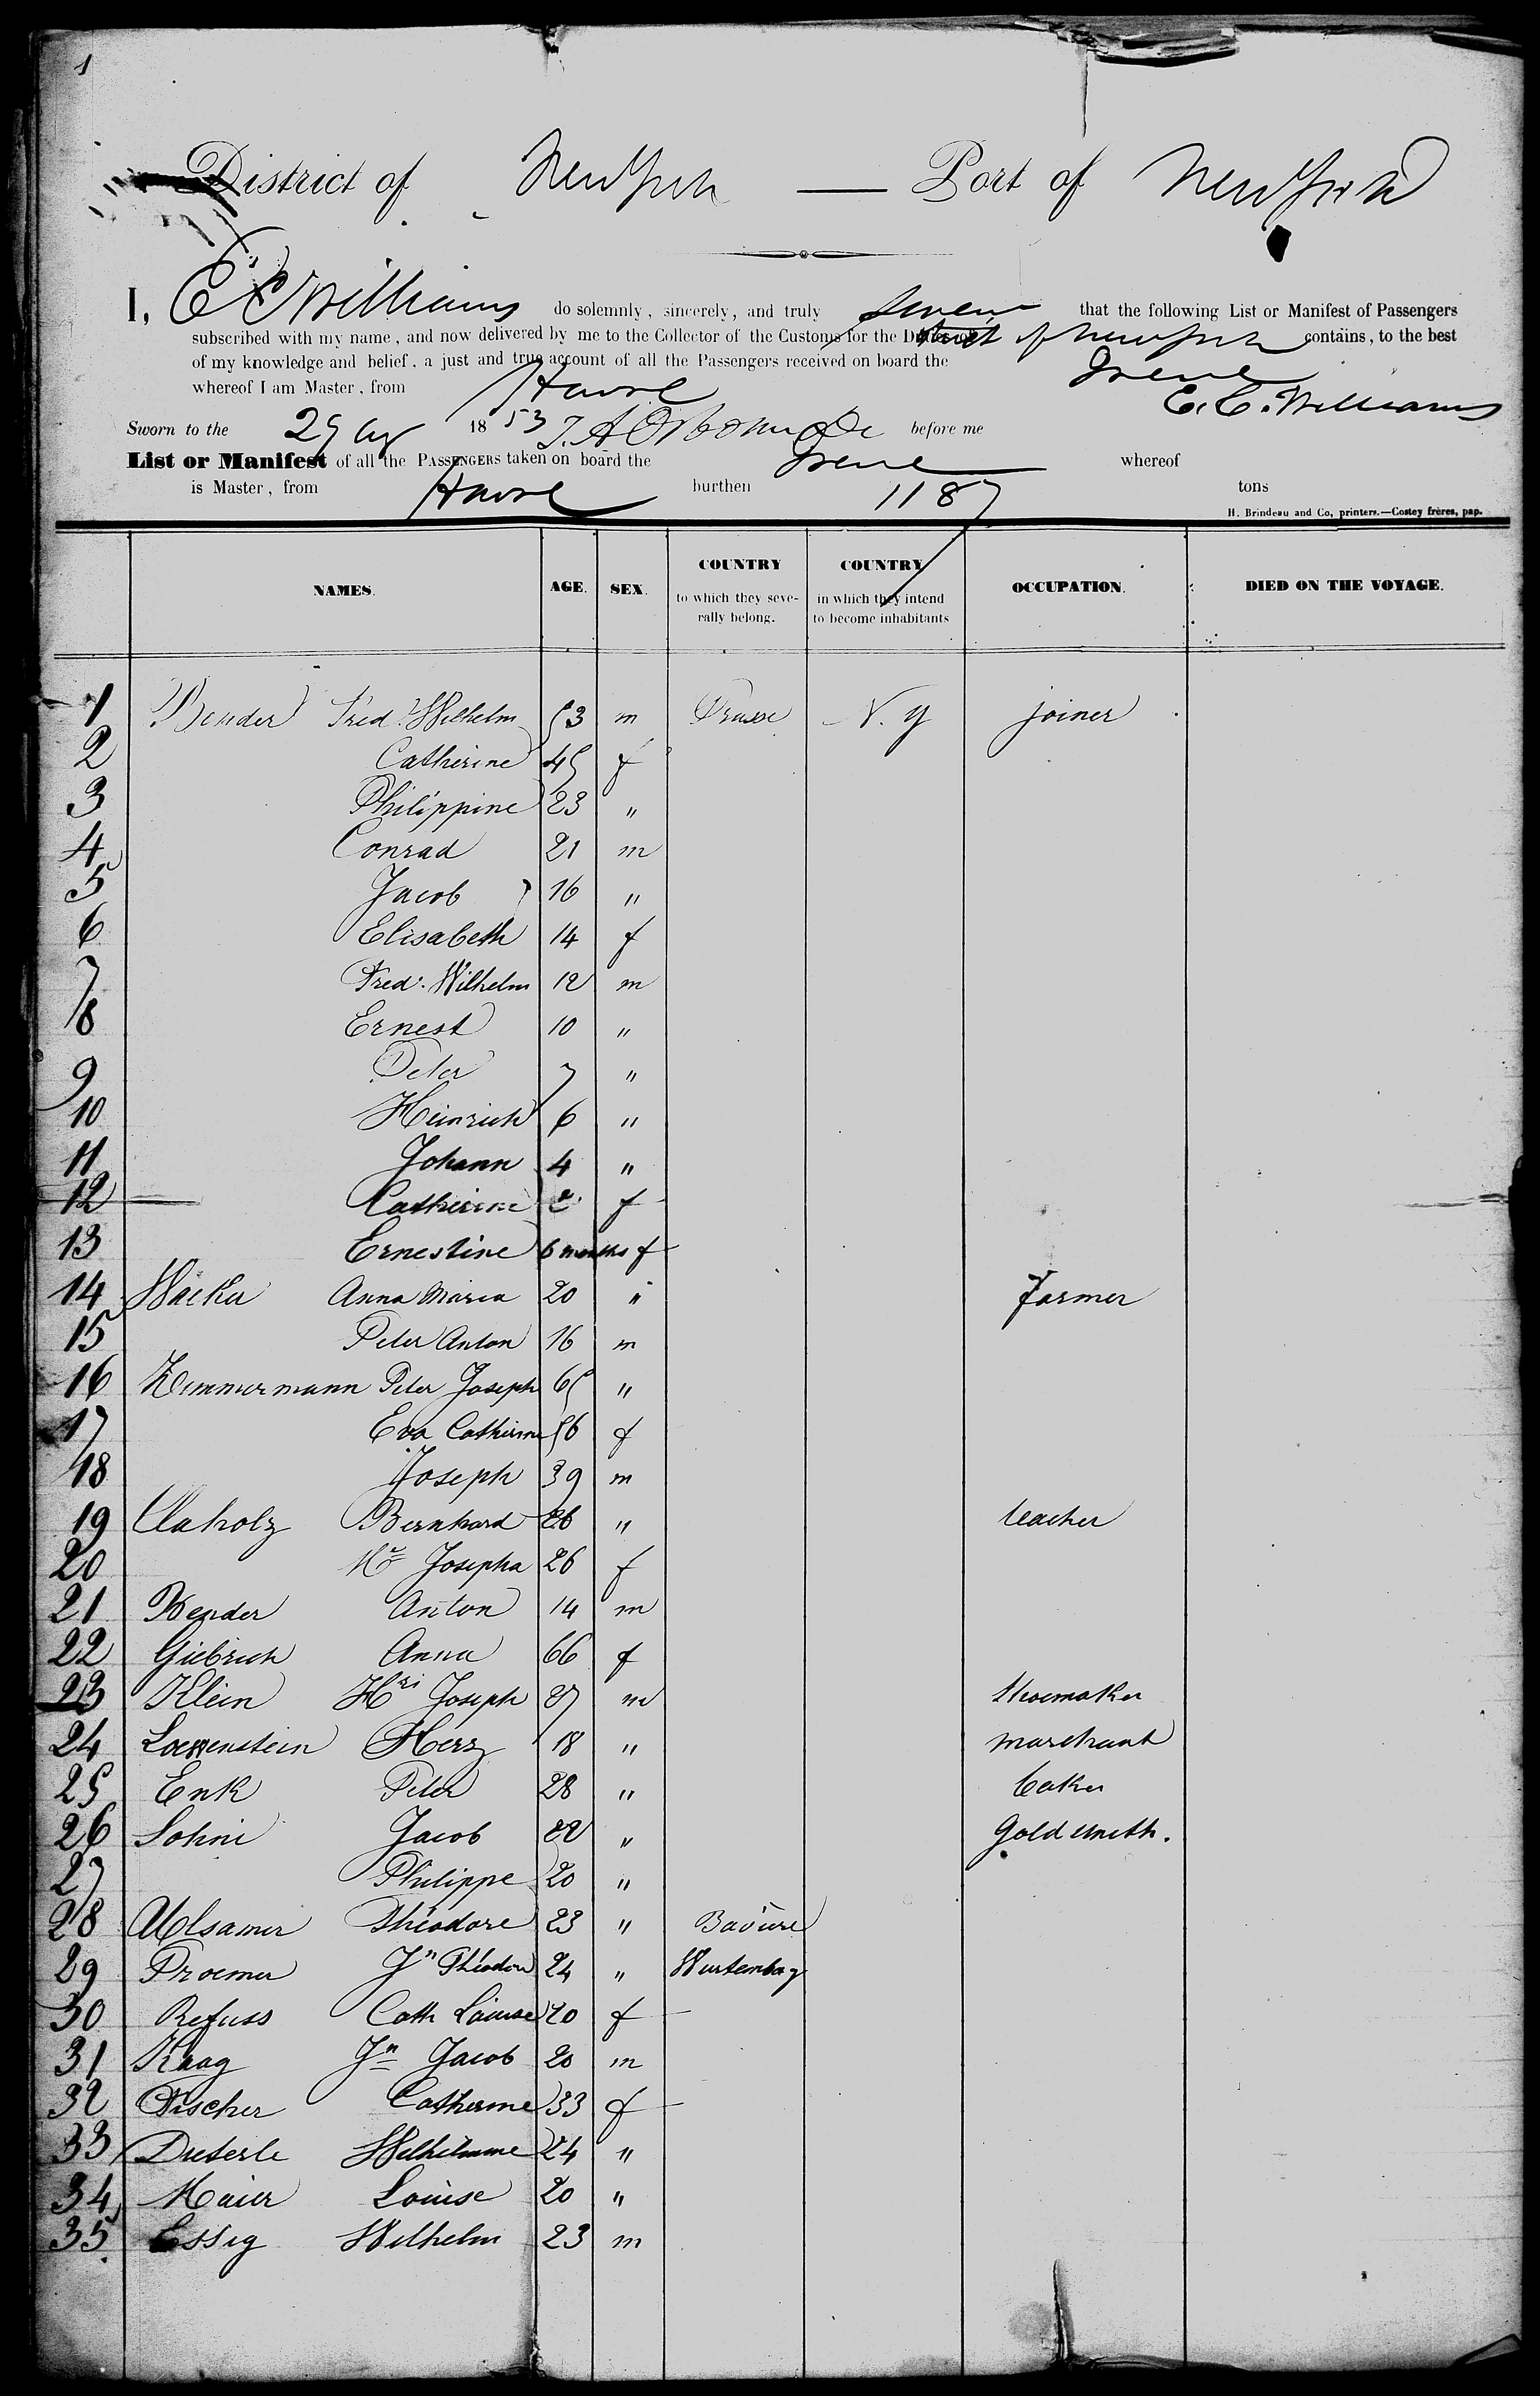 1
District of New York — Port of New York
I, E C Williams do solemnly, sincerely, and truly swear that the following List or Manifest of Passengers
subscribed with my name, and now delivered by me to the Collector of the Customs for the District of New York contains, to the best
of my knowledge and belief, a just and true account of all the Passengers received on board the Irene
whereof I am Master, from Havre E. C. Williams
Sworn to the 29 1853 before me
List or Manifest of all the PASSENGERS taken on board the Irene whereof
is Master, from Havre burthen 1187 tons
H. Brindeau and Co, printers.—Costey frères, pap.
NAMES. AGE. SEX. COUNTRY to which they severally belong. COUNTRY in which they intend to become inhabitants OCCUPATION. DIED ON THE VOYAGE.
1 Bender Fred. Wilhelm 53 m Prusse N. Y joiner
2 Catherine 45 f
3 Philippine 23 "
4 Conrad 21 m
5 Jacob 16 "
6 Elisabeth 14 f
7 Fred. Wilhelm 12 m
8 Ernest 10 "
9 Peter 7 "
10 Heinrich 6 "
11 Johann 4 "
12 Catherine 2 f
13 Ernestine 6 months f
14 Wacker Anna Maria 20 " farmer
15 Peter Anton 16 m
16 Zimmermann Peter Joseph 65 "
17 Eva Catherine 56 f
18 Joseph 39 m
19 Claholz Bernhard 26 " teacher
20 Josepha 26 f
21 Bender Anton 14 m
22 Giebrich Anna 66 f
23 Klein Hri Joseph 27 m Shoemaker
24 Loewenstein Herz 18 " marchant
25 Enk Peter 28 " baker
26 Sohni Jacob 22 " Goldsmith.
27 Philippe 20 "
28 Ulsamer Théodore 23 " Bavière
29 Proemer Jn Théodore 24 " Wurtemberg
30 Refuss Cath Louise 20 f
31 Kaag Jn Jacob 20 m
32 Fischer Catherine 33 f
33 Dieterle Wilhelmine 24 "
34 Maier Louise 20 "
35 Essig Wilhelm 23 m